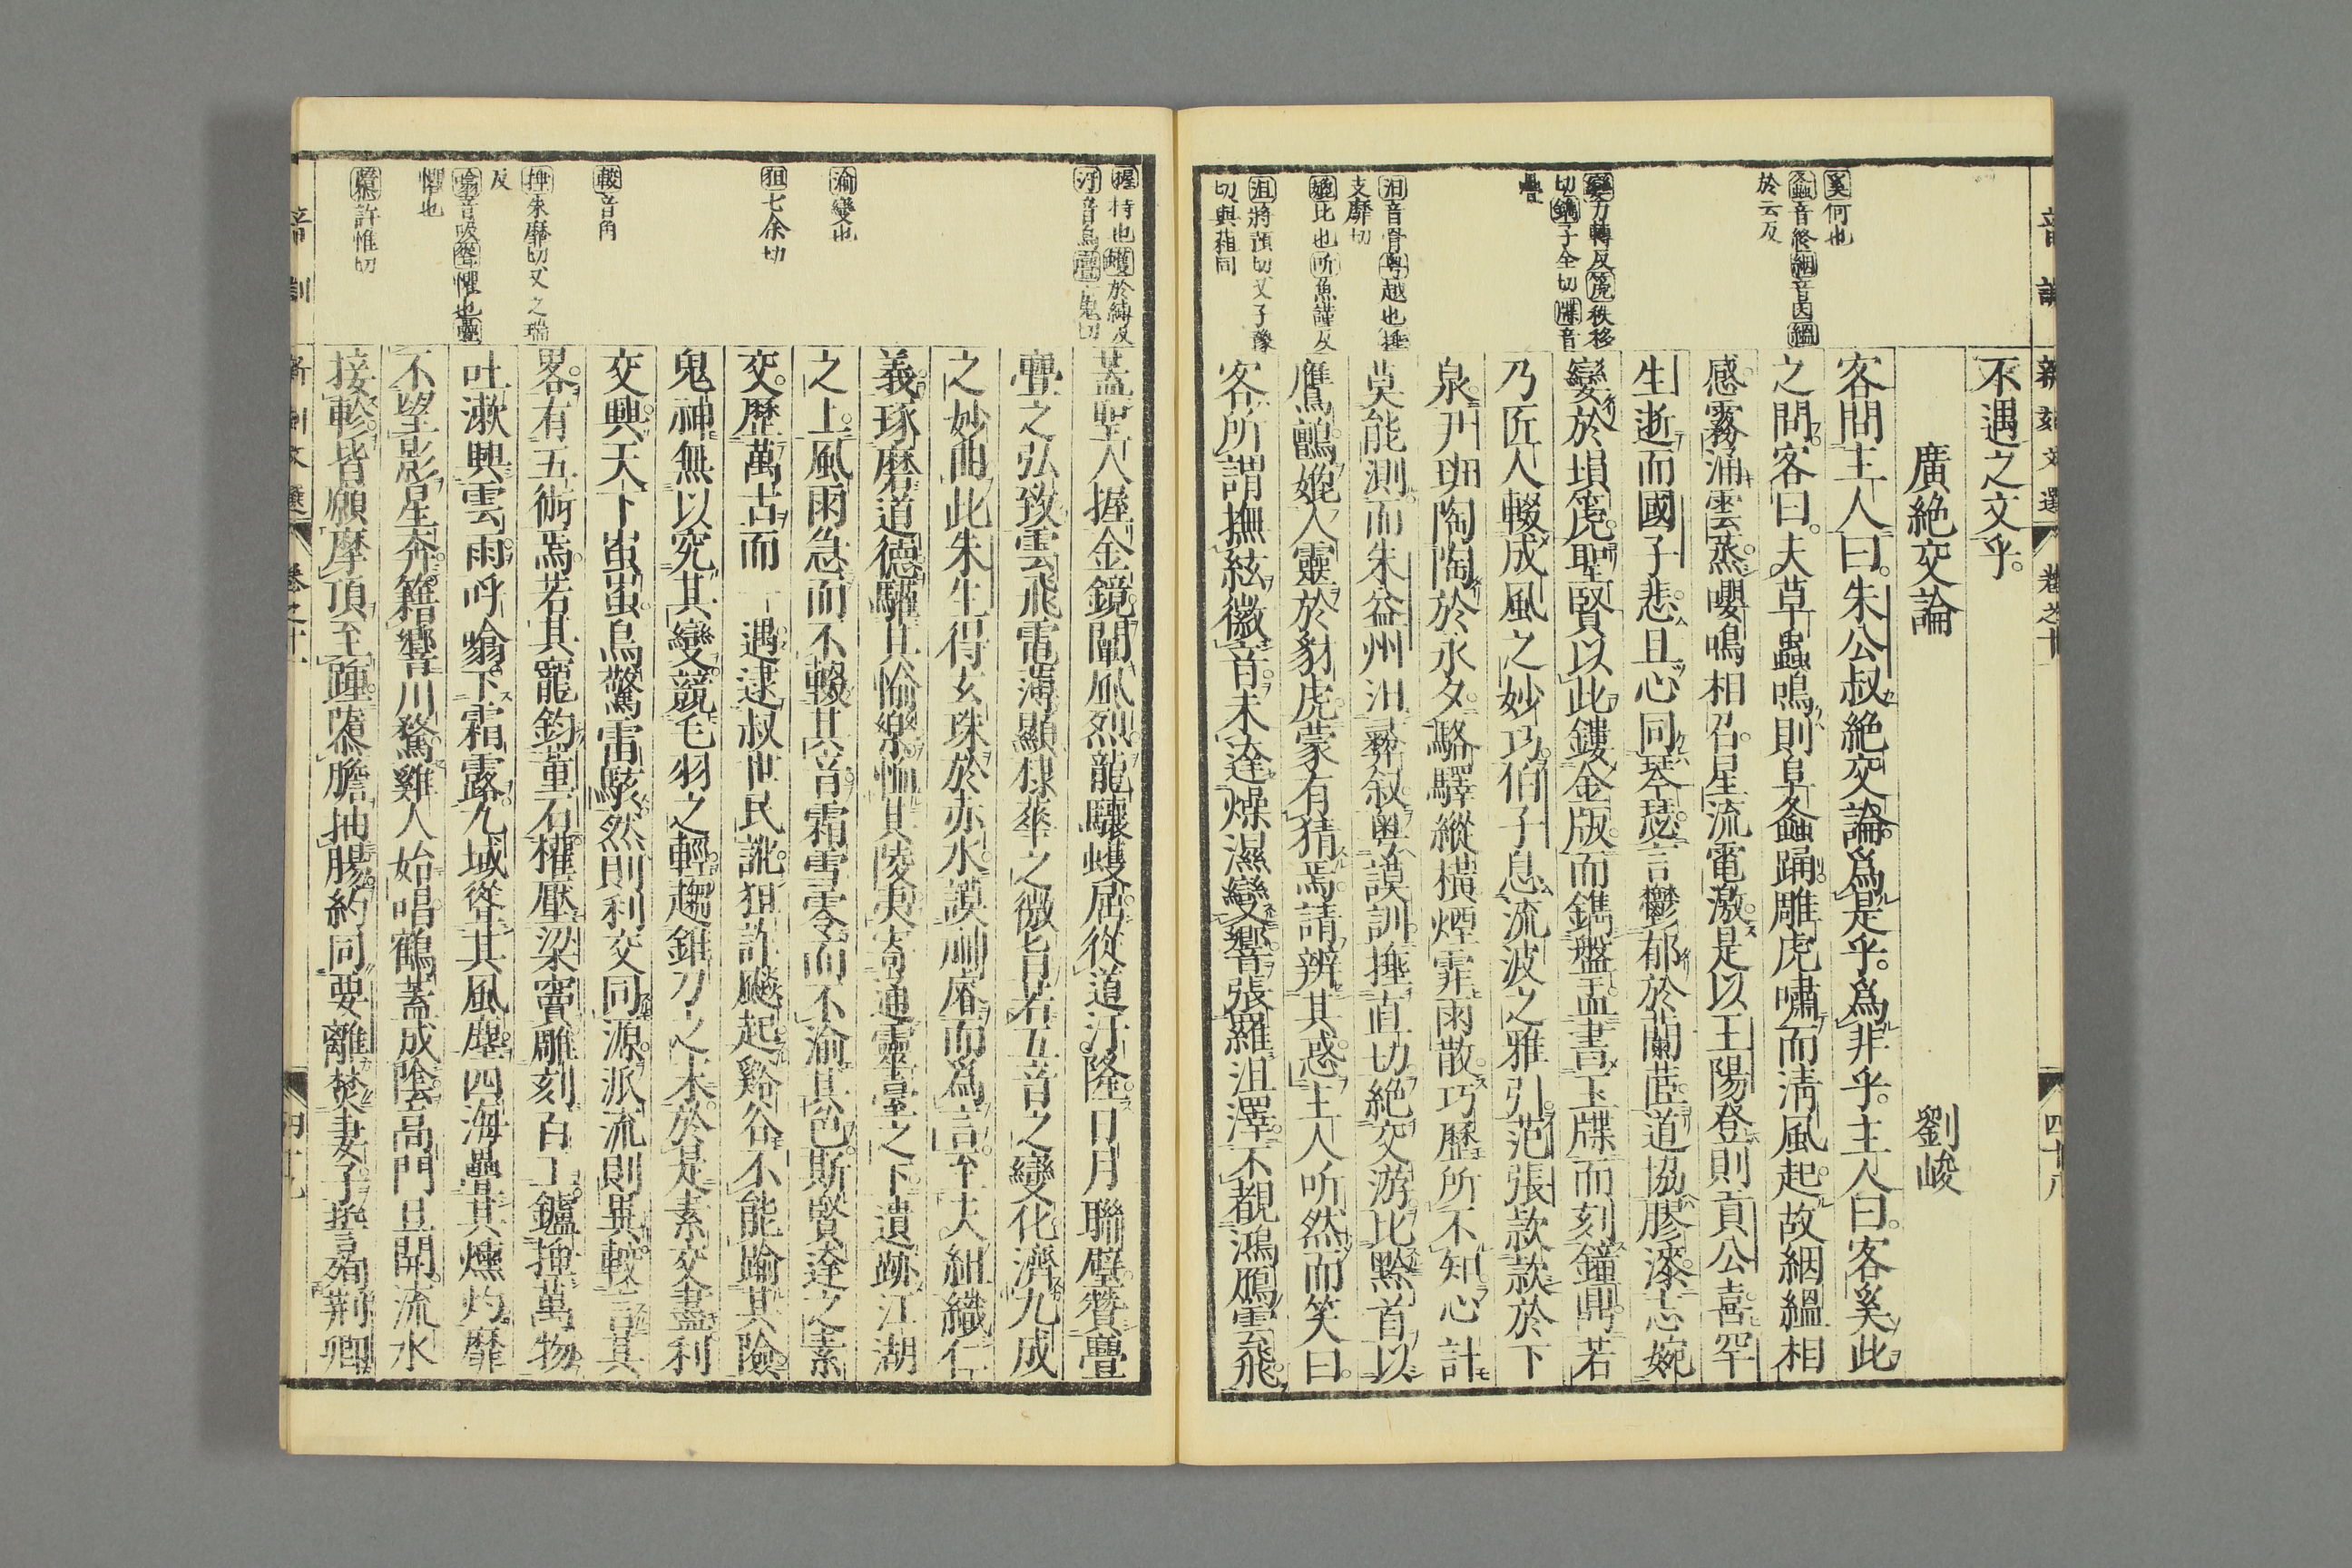 音訓 新刻文選 卷之十 四十八
不遇之文乎。
廣絶交論 劉峻
客問主人曰。朱公叔絶交論。爲是乎。爲非乎。主人曰。客奚此
之問。客曰。夫草蟲鳴則阜螽踊。雕虎嘯而淸風起。故絪縕相
感。霧涌雲蒸。嚶鳴相召。星流電激。是以王陽登則貢公喜。罕
生逝而國子悲。且心同琴瑟。言鬱郁於蘭茝。道協膠漆。志婉
孌於塤箎。聖賢以此鏤金版。而鐫盤盂。書玉牒而刻鐘鼎。若
乃匠人輟成風之妙巧。伯子息流波之雅引。范張款款於下
泉。尹班陶陶於永夕。駱驛縱橫。煙霏雨散。巧歷所不知。心計
莫能測。而朱益州汨彛叙。粤謨訓。捶直切。絶交游。比黔首以
鷹鸇。媲人靈於豺虎。蒙有猜焉。請辨其惑。主人听然而笑曰。
客所謂撫絃徽音。未達燥濕變響。張羅沮澤。不覩鴻鴈雲飛。
奚何也
螽音終絪音因縕
於云反
孌力轉反箎秩移
切鐫子全切牒音
疊
汨音骨粤越也捶
支靡切
媲比也听魚謹反
沮將預切又子豫
切與葅同
蓋聖人握金鏡。闡風烈。龍驤蠖居。從道汙隆。日月聯璧。贊亹
亹之弘致。雲飛電薄。顯棣華之微旨。若五音之變化。濟九成
之妙曲。此朱生得玄珠於赤水。謨神睿而爲言。至夫組織仁
義。琢磨道德。驩其愉樂。恤其陵夷。寄通靈臺之下。遺跡江湖
之上。風雨急而不輟其音。霜雪零而不渝其色。斯賢達之素
交。歷萬古而一遇。逮叔世民訛。狙詐飈起。谿谷不能踰其險。
鬼神無以究其變。競毛羽之輕。趨錐刀之末。於是素交盡。利
交興。天下蚩蚩。鳥驚雷駭。然則利交同源。派流則異。較言其
畧。有五術焉。若其寵鈞董石。權壓梁竇。雕刻百工。鑪捶萬物。
吐漱興雲雨。呼噏下霜露。九域從其風塵。四海疊其燻灼。靡
不望影星奔。籍響川騖。雞人始唱。鶴蓋成陰。高門旦開。流水
接軫。皆願摩頂至踵。隳膽抽腸。約同要離焚妻子。誓殉荆卿
握持也蠖於縛反
汙音烏亹亡鬼切
渝變也
狙七余切
較音角
捶朱靡切又之瑞
反
噏音吸讋懼也疊
懼也
隳許惟切
音訓 新刻文選 卷之十 四十九